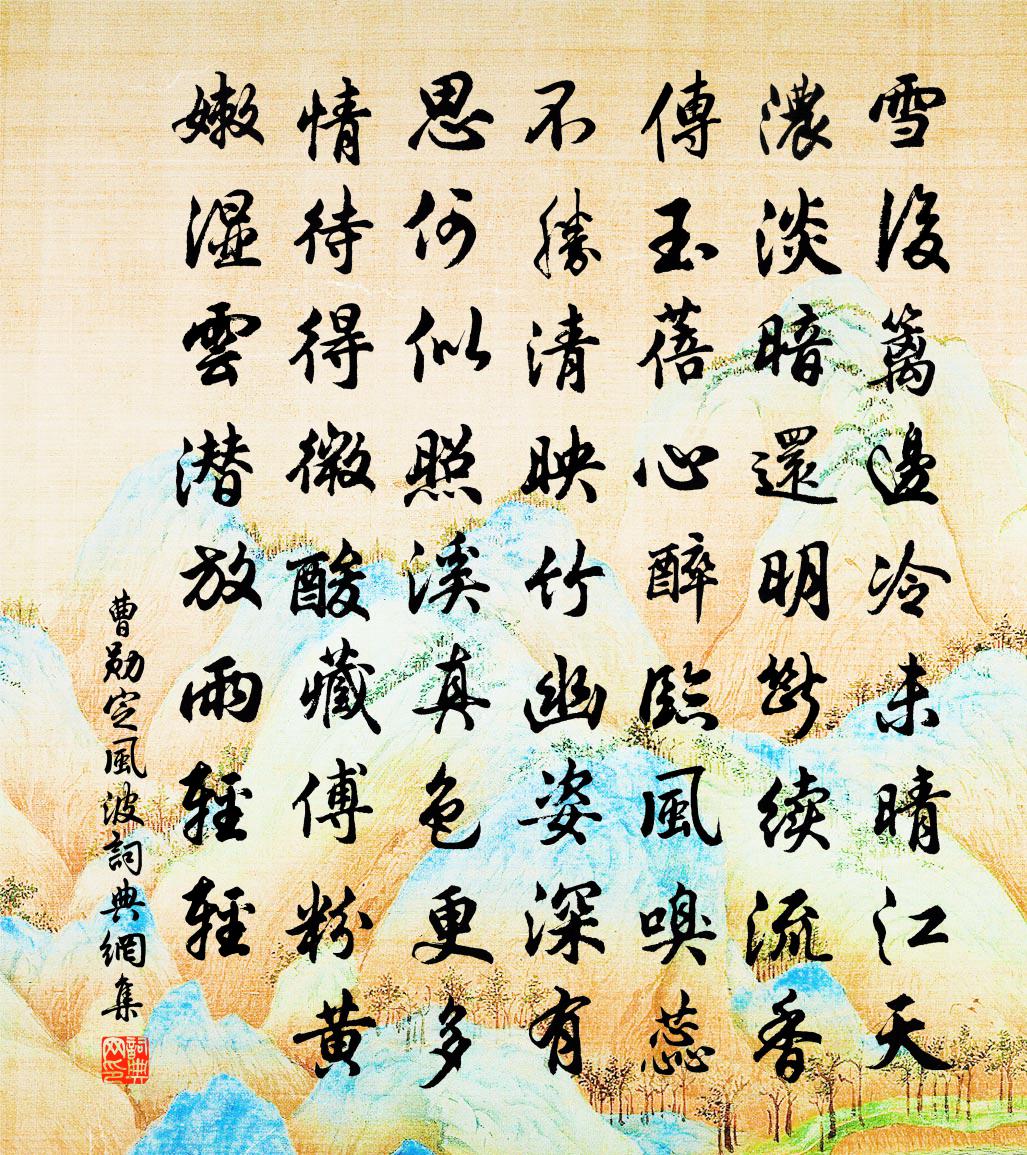 雪後篱邊冷未晴江天
濃淡暗還明斷续流香
傳玉蓓心醉臨風嗅蕊
不勝清映竹幽姿深有
思何似照溪真色更多
情待得微酸藏傅粉黄
嫩湿雲潜放雨輕輕
曹勋定風波詞典網集
詞典网印